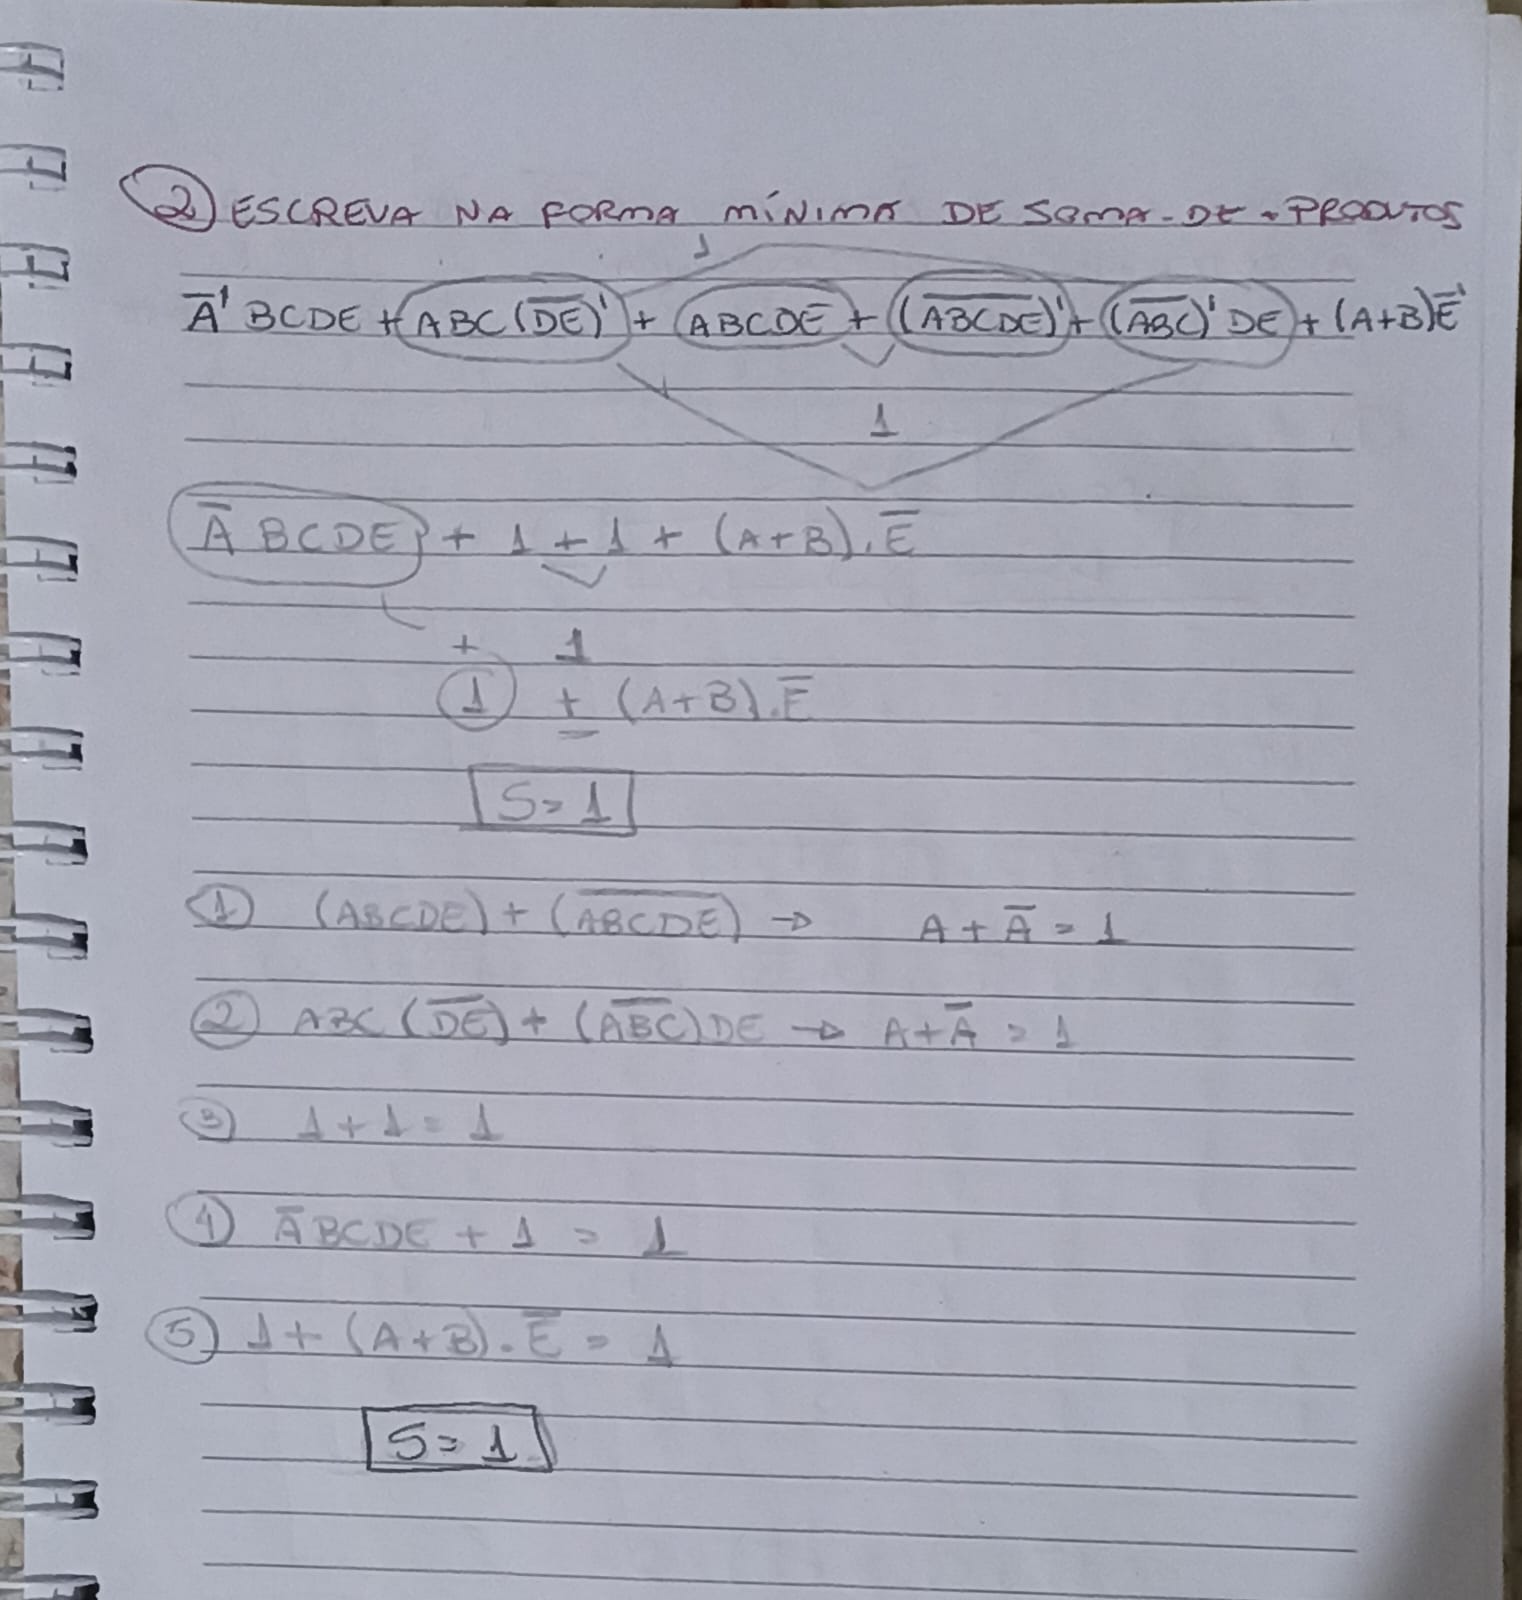 ② ESCREVA NA FORMA MÍNIMA DE SOMA-DE-PRODUTOS
1
A̅' BCDE + ABC(D̅E̅)' + ABCDE + (A̅B̅C̅D̅E̅)' + (A̅B̅C̅)' DE + (A+B)E̅'
1
A̅ BCDE + 1 + 1 + (A+B).E̅
+ 1
1 + (A+B).E̅
S=1
① (ABCDE) + (A̅B̅C̅D̅E̅) → A + A̅ = 1
② ABC (D̅E̅) + (A̅B̅C̅)DE → A + A̅ = 1
③ 1+1=1
④ A̅BCDE + 1 = 1
⑤ 1+(A+B).E̅ = 1
S=1